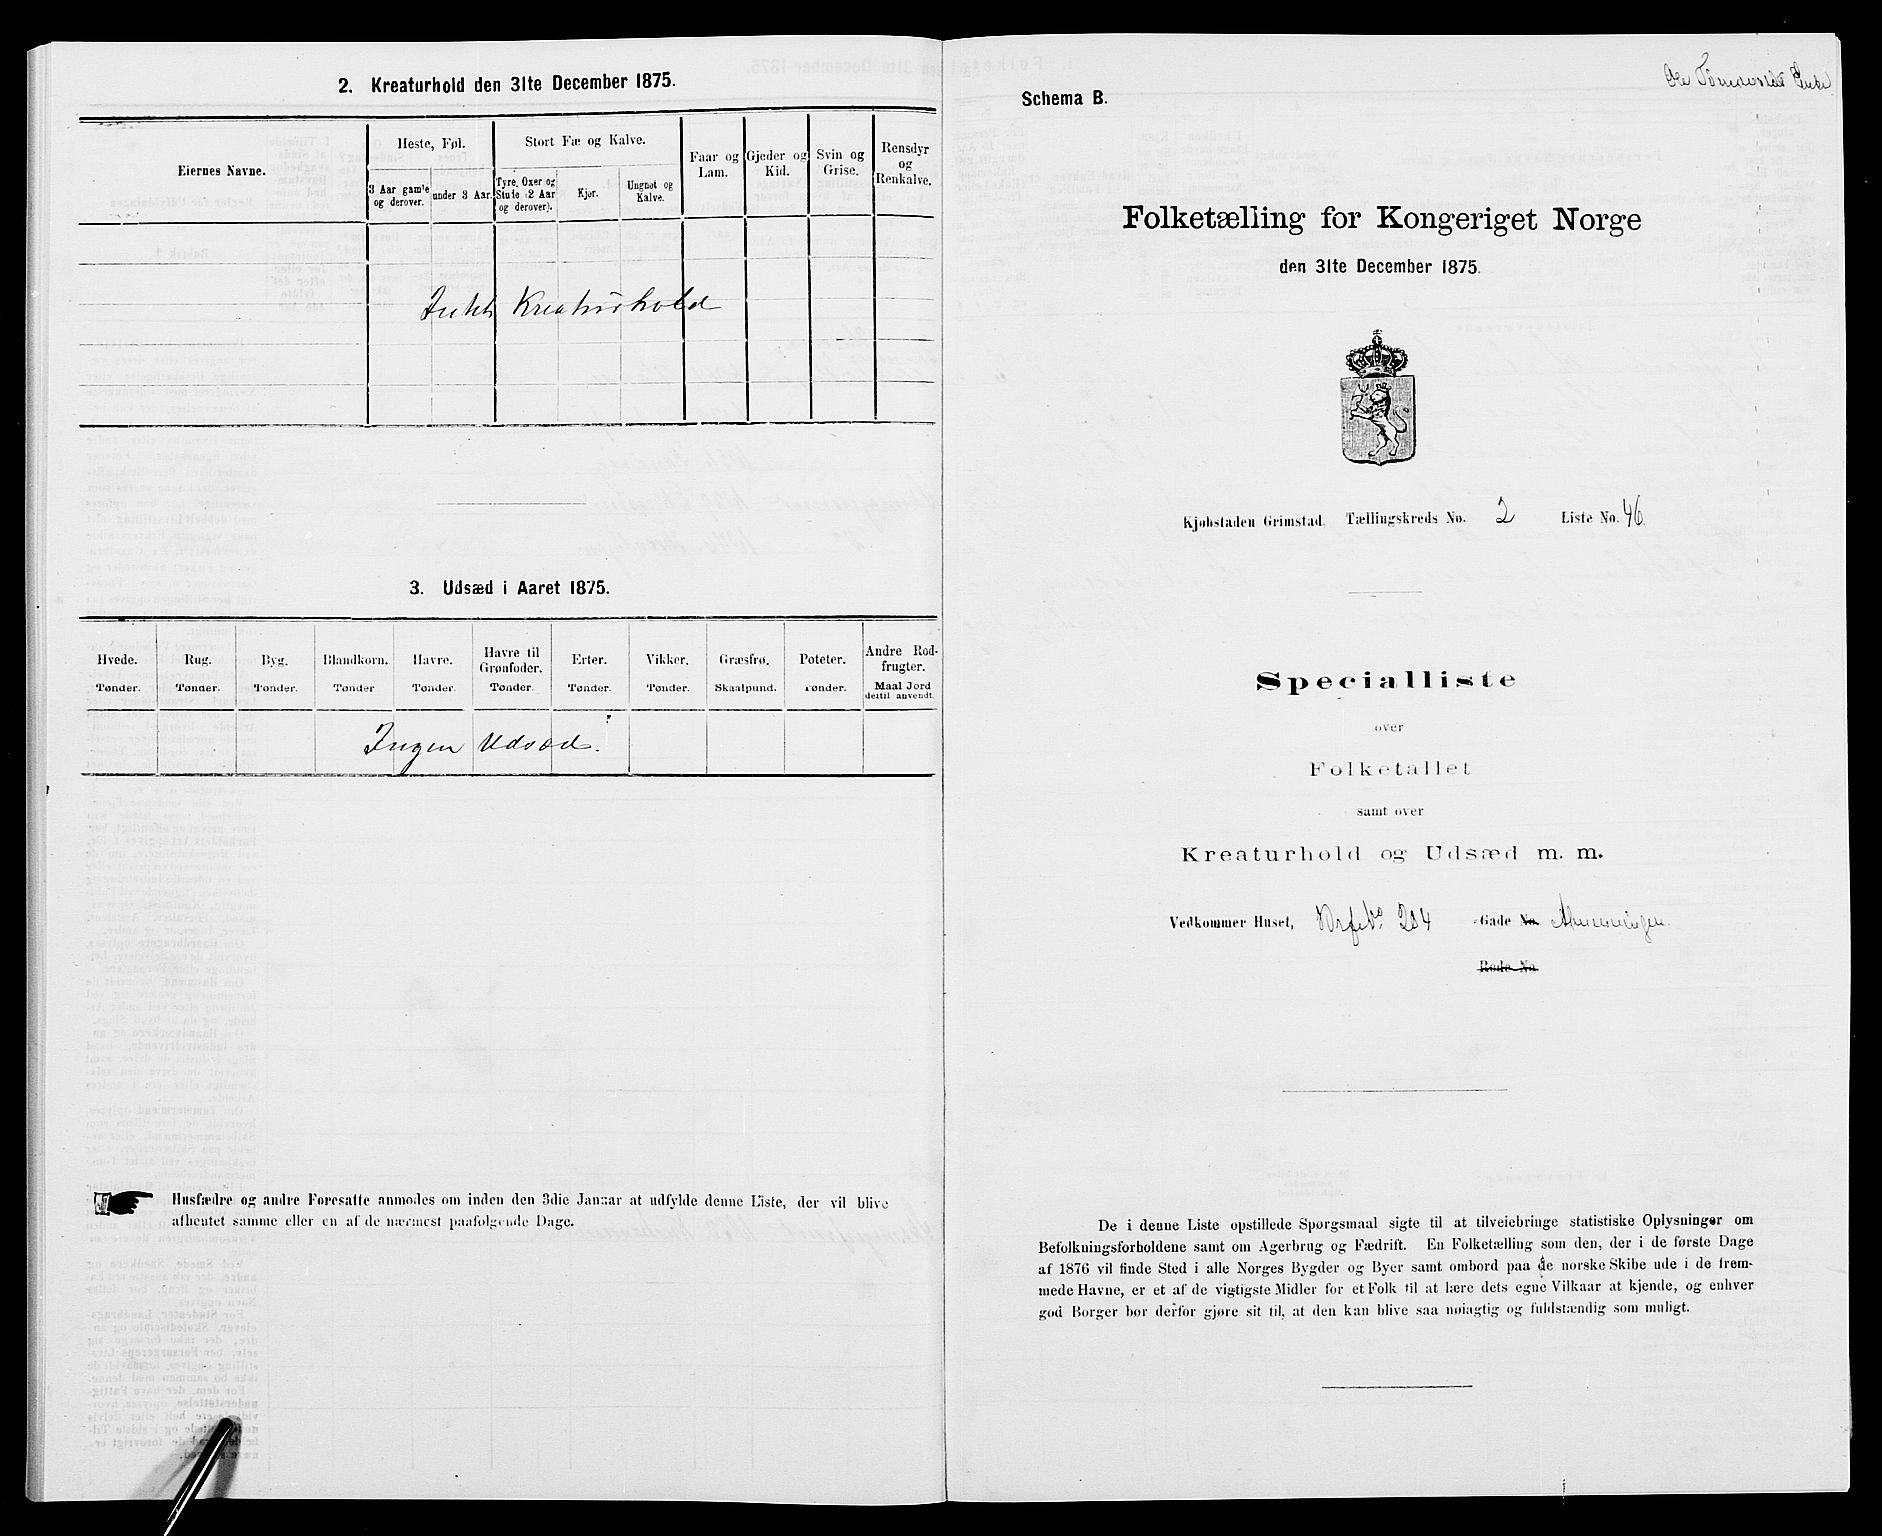 2. Kreaturhold den 31te December 1875.
Eiernes Navne.
Heste, Føl.
Stort Fæ og Kalve.
Faar og Lam.
Gjeder og Kid.
Svin og Grise.
Rensdyr og Renkalve.
3 Aar gamle og derover.
under 3 Aar.
Tyre, Oxer og Stude (2 Aar og derover).
Kjør.
Ungnøt og Kalve.
Kreaturhold
3. Udsæd i Aaret 1875.
Hvede. Rug. Byg. Blandkorn. Havre. Havre til Grønfoder. Erter. Vikker. Græsfrø. Poteter. Andre Rodfrugter.
Tønder. Tønder. Tønder. Tønder Tønder. Tønder. Tønder. Tønder. Skaalpund. Tønder. Maal Jord dertil anvendt.
Ingen Udsæd.
Husfædre og andre Foresatte anmodes om inden den 3die Januar at udfylde denne Liste, der vil blive
afhentet samme eller en af de nærmest paafølgende Dage.
Schema B.
Ole Enke
Folketælling for Kongeriget Norge
den 31te December 1875.
Kjøbstaden Grimstad. Tællingskreds No. 2 Liste No. 46
Specialliste
over
Folketallet
samt over
Kreaturhold og Udsæd m. m.
Vedkommer Huset, 204 -Gade No.
Rode No.
De i denne Liste opstillede Spørgsmaal sigte til at tilveiebringe statistiske Oplysninger om
Befolkningsforholdene samt om Agerbrug og Fædrift. En Folketælling som den, der i de første Dage
af 1876 vil finde Sted i alle Norges Bygder og Byer samt ombord paa de norske Skibe ude i de frem-
mede Havne, er et af de vigtigste Midler for et Folk til at lære dets egne Vilkaar at kjende, og enhver
god Borger bør derfor gjøre sit til, at den kan blive saa nøiagtig og fuldstændig som muligt.